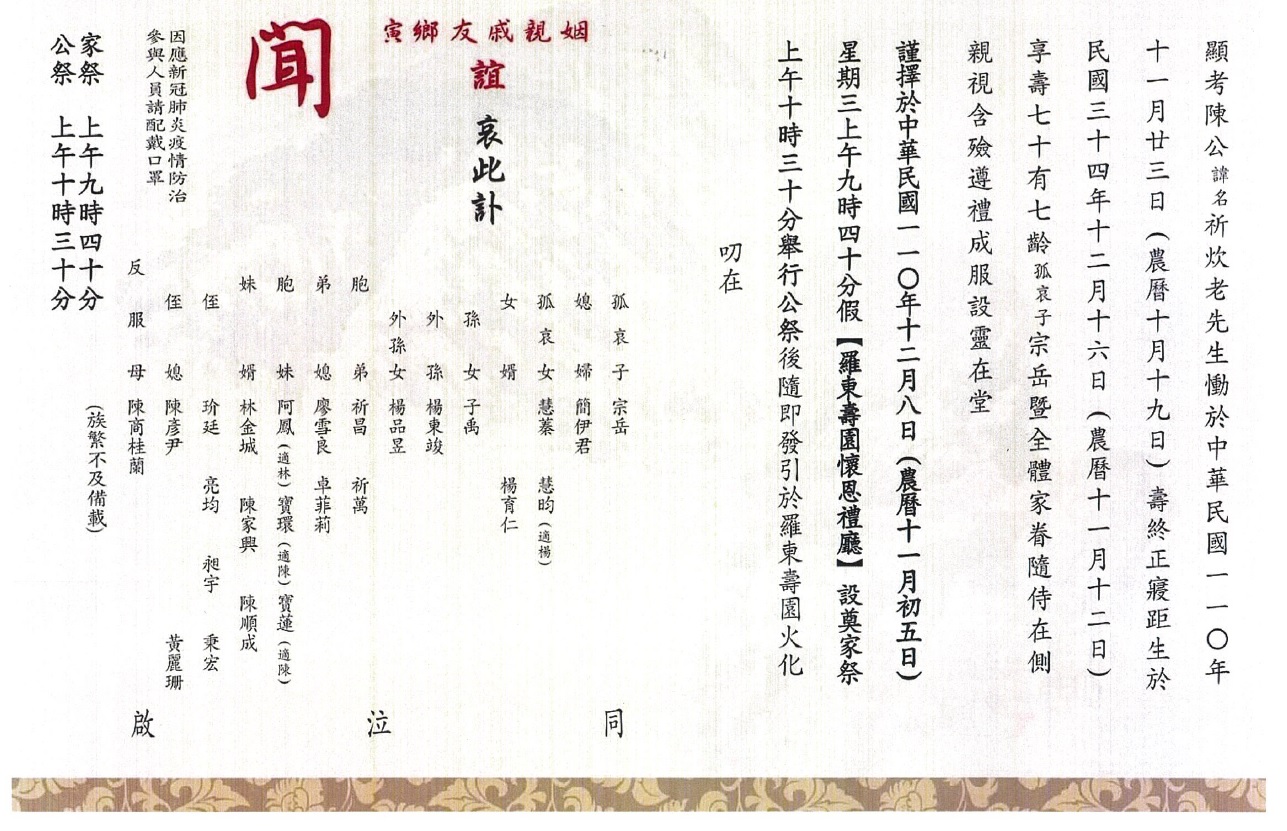 顯考陳公諱名祈炊老先生慟於中華民國一一〇年
十一月廿三日(農曆十月十九日)壽終正寢距生於
民國三十四年十二月十六日(農曆十一月十二日)
享壽七十有七齡孤哀子宗岳暨全體家眷隨侍在側
親視含殮遵禮成服設靈在堂
謹擇於中華民國一一〇年十二月八日(農曆十一月初五日)
星期三上午九時四十分假【羅東壽園懷恩禮廳】設奠家祭
上午十時三十分舉行公祭後隨即發引於羅東壽園火化
叨在
姻親戚友鄉寅
誼
哀此訃
聞
孤哀子 宗岳
媳婦 簡伊君
孤哀女 慧蓁 慧昀(適楊)
女婿 楊育仁
孫女 子禹
外孫 楊東竣
外孫女 楊品昱
胞弟 祈昌 祈萬
弟媳 廖雪良 卓菲莉
胞妹 阿鳳(適林) 寶環(適陳) 寶蓮(適陳)
妹婿 林金城 陳家興 陳順成
侄 玠廷 亮均 昶宇 秉宏
侄媳 陳彥尹 黃麗珊
反服母 陳商桂蘭
(族繁不及備載)
同泣啟
因應新冠肺炎疫情防治
參與人員請配戴口罩
家祭 上午九時四十分
公祭 上午十時三十分